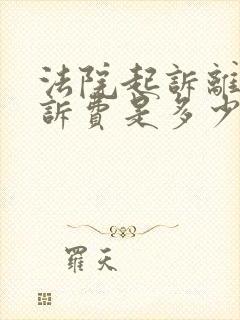 法院起訴離
訴費是多少
羅天